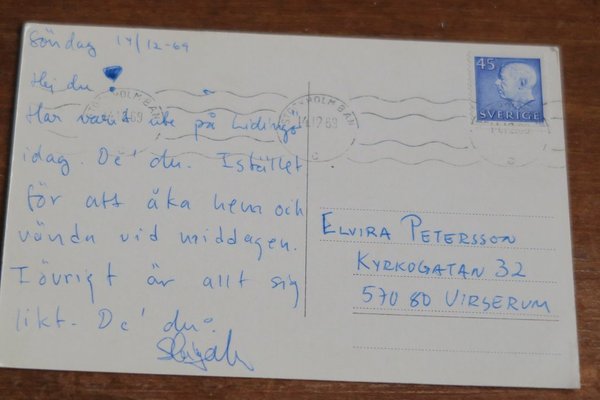 Söndag 14/12-69
Hej du!
Har varit ute på Lidingö
idag. De' du. Istället
för att åka hem och
vända vid middagen.
I övrigt är allt sig
likt. De' du.
45
SVERIGE
STOCKHOLM BAN
14.12.69
C
ELVIRA PETERSSON
KYRKOGATAN 32
570 80 VIRSERUM